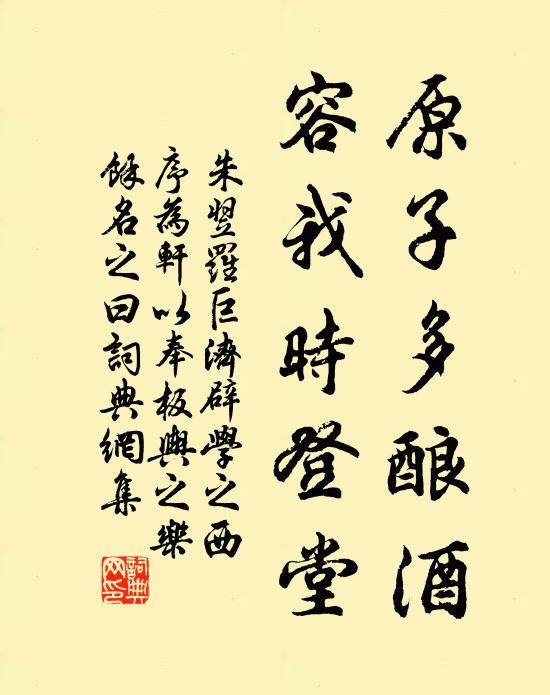 原子多酿酒
容我時登堂
朱翌羅巨濟辟學之西
序為軒以奉板輿之樂
餘名之曰詞典網集
詞典
网印